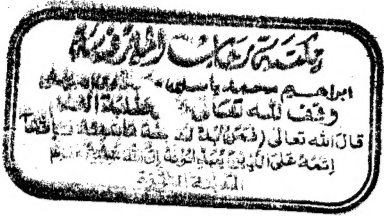 مكتبة
ابراهيم محمد ياسين
وقف لله تعالى لطلبة العلم
قال الله تعالى (فمن بدله بعد ما سمعه فإنما
إثمه على الذين يبدلونه إن الله سميع عليم
المدينة المنورة